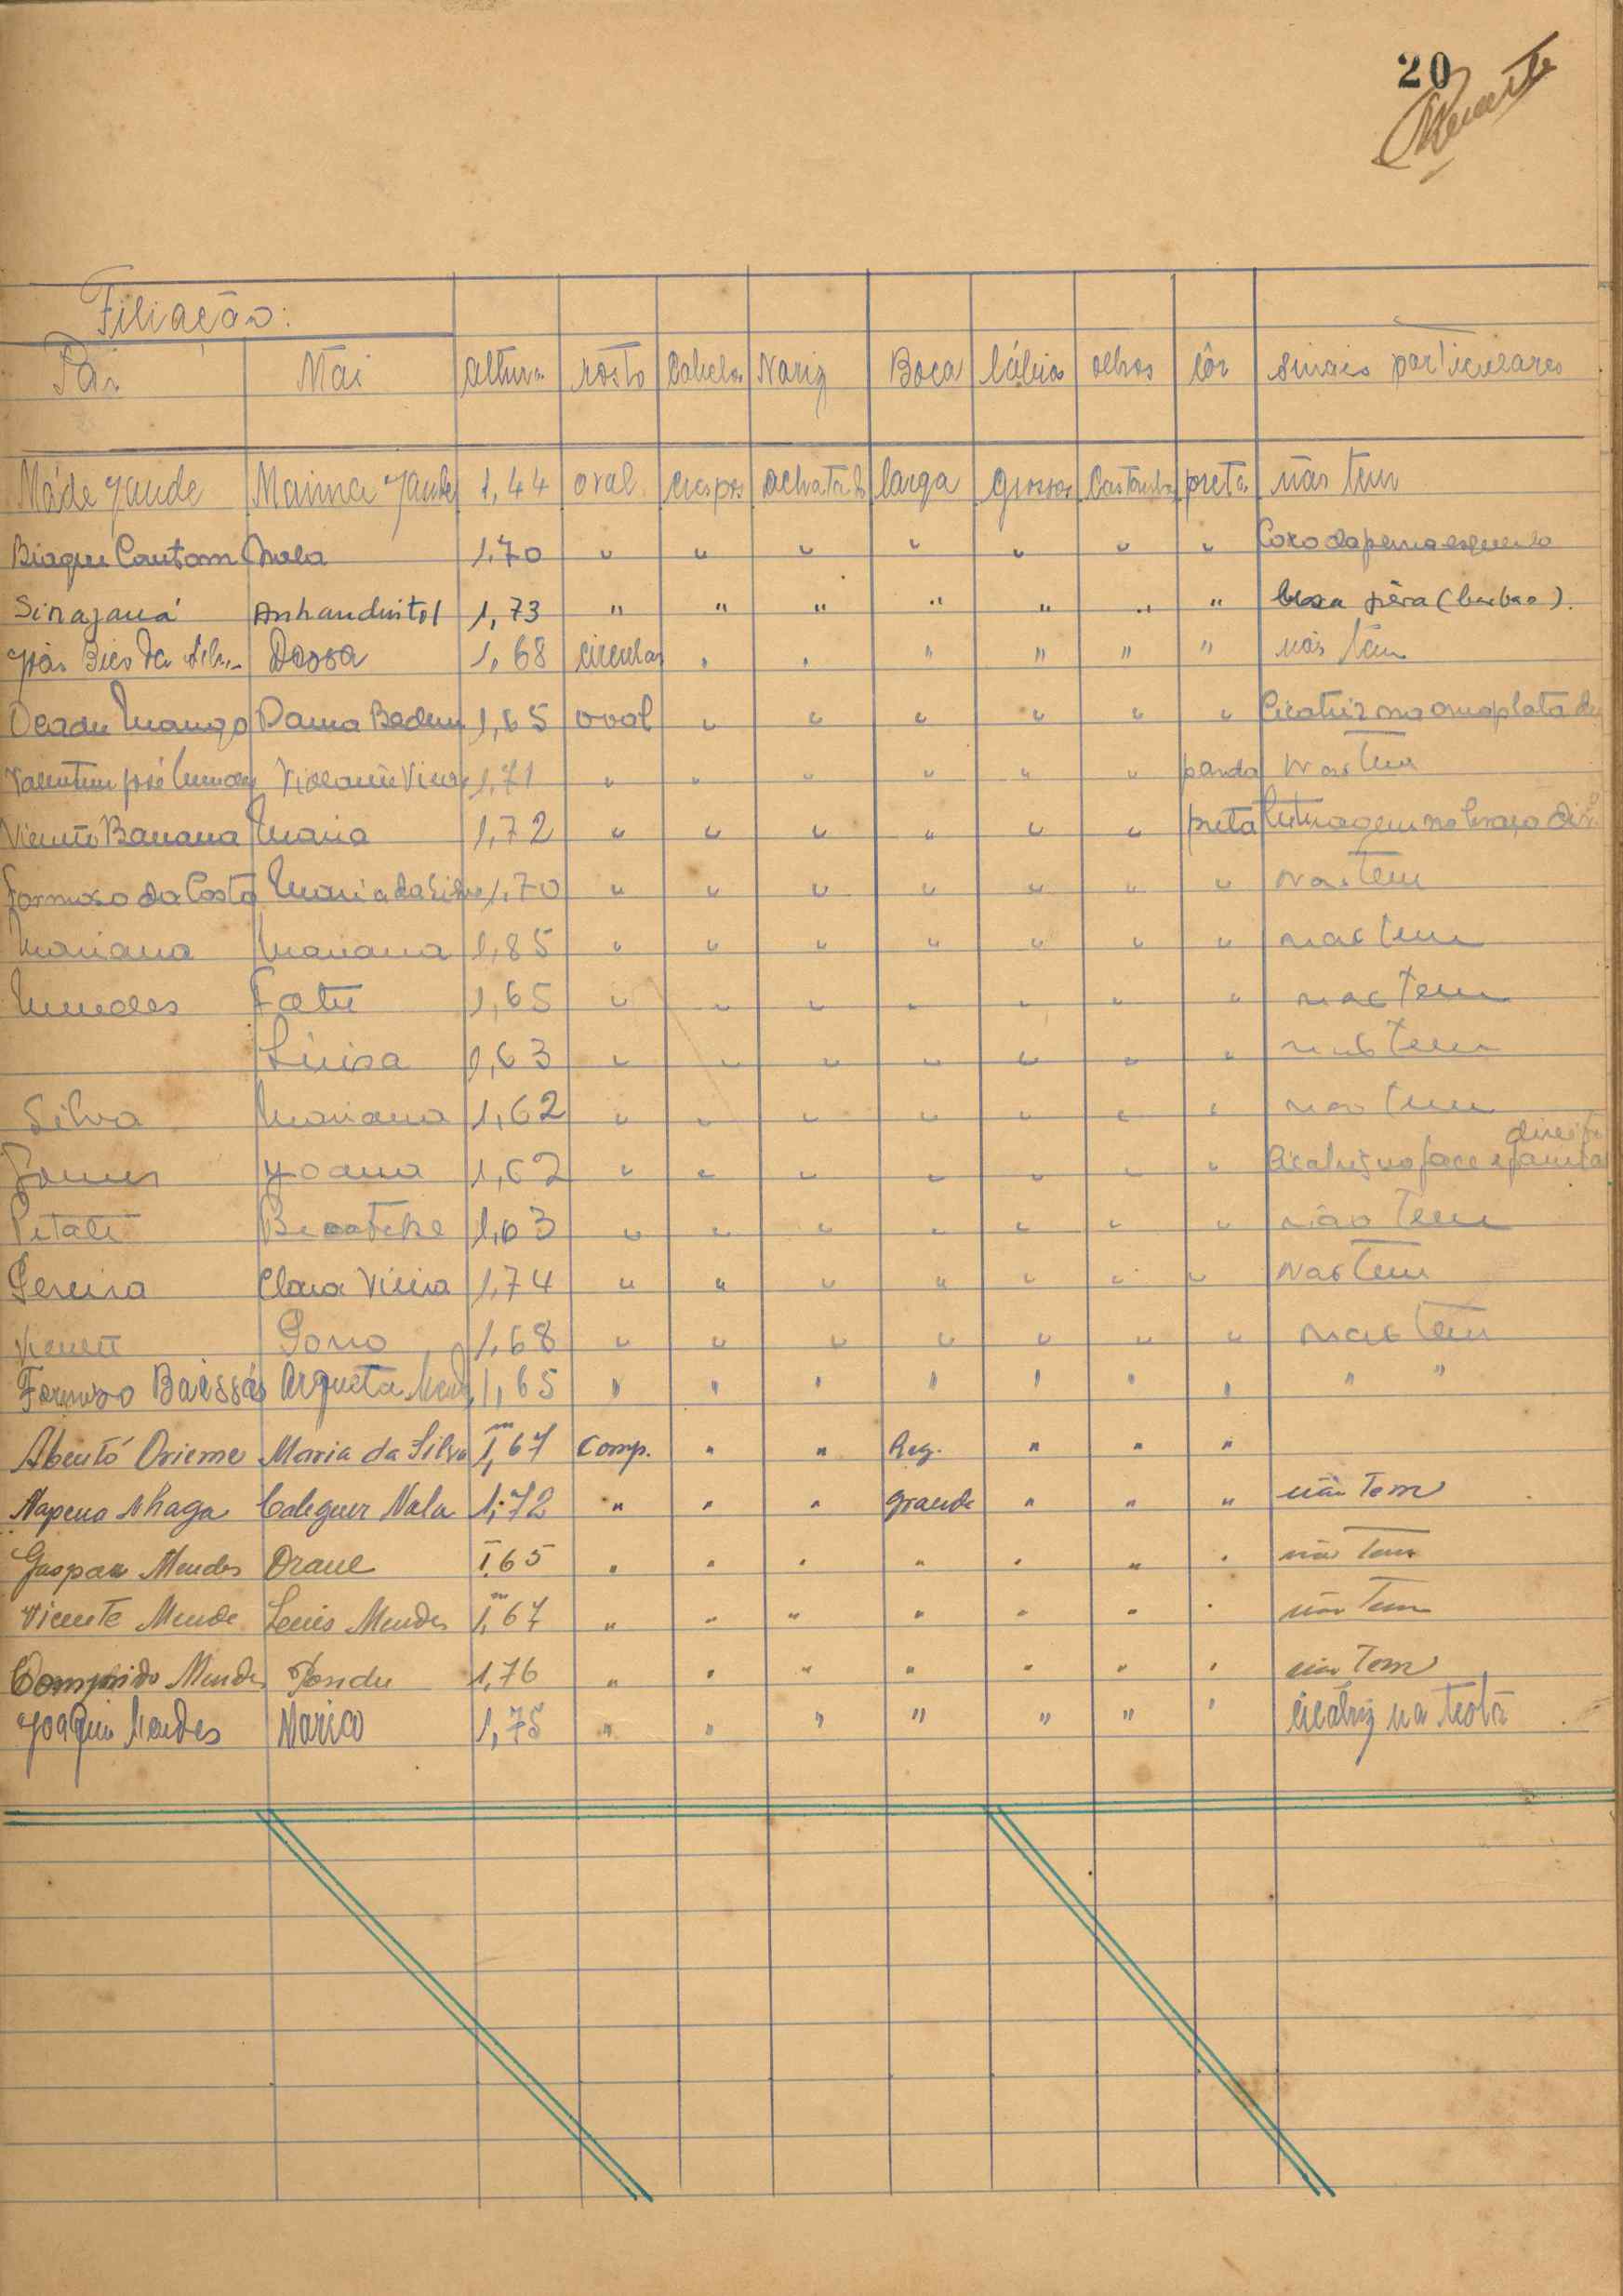 20
Filiação:
Pai Mai altura rosto Cabelos Nariz Boca lábios olhos côr sinais particulares
Máde Jaude Mainca Jaude 1,44 oval crespos achatado larga grossos Castanhos preta não tem
Biaque Cautam Nala 1,70 " " " " " " " Coxo da perna esquerda
Sinajauá Anhanduntol 1,73 " " " " " " " usa pêra (barbas).
João Bico da Silva Dossa 1,68 circular " " " " " " não tem
Mango Dama Badum 1,65 oval " " " " " " Cicatriz na omoplata
Valentim José Mendes Vieira 1,71 " " " " " " parda não tem
Vicente Banana Maria 1,72 " " " " " " preta tatuagem no braço dirº
Formoso da Costa Maria da Silva 1,70 " " " " " " " não tem
Mariana Mariana 1,85 " " " " " " " não tem
Mendes Fatu 1,65 " " " " " " " não tem
Luisa 1,63 " " " " " " " não tem
Silva Mariana 1,62 " " " " " " " não tem
Gomes Joana 1,62 " " " " " " " Cicatriz na face direita
1,63 " " " " " " " não tem
Pereira Clara Vieira 1,74 " " " " " " " não tem
Vicente 1,68 " " " " " " " não tem
Formoso Baissás Argueta Mend 1,65 " " " " " " " " "
Abentó Orieme Maria da Silva 1,m67 Comp. " " Reg. " " "
Napena Nhaga Caleguer Nala 1,72 " " " grande " " " não tem
Gaspar Mendes Draue 1,65 " " " " " " " não tem
Vicente Mende Leuis Mendes 1,m67 " " " " " " " não tem
Comprido Mendes Pondu 1,76 " " " " " " " não tem
Joaquim Mendes Narico 1,75 " " " " " " " cicatriz na testa